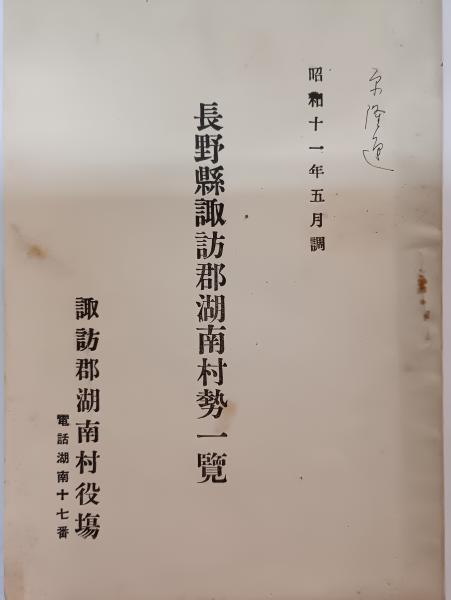 昭和十一年五月調
長野縣諏訪郡湖南村勢一覽
諏訪郡湖南村役塲
電話湖南十七番